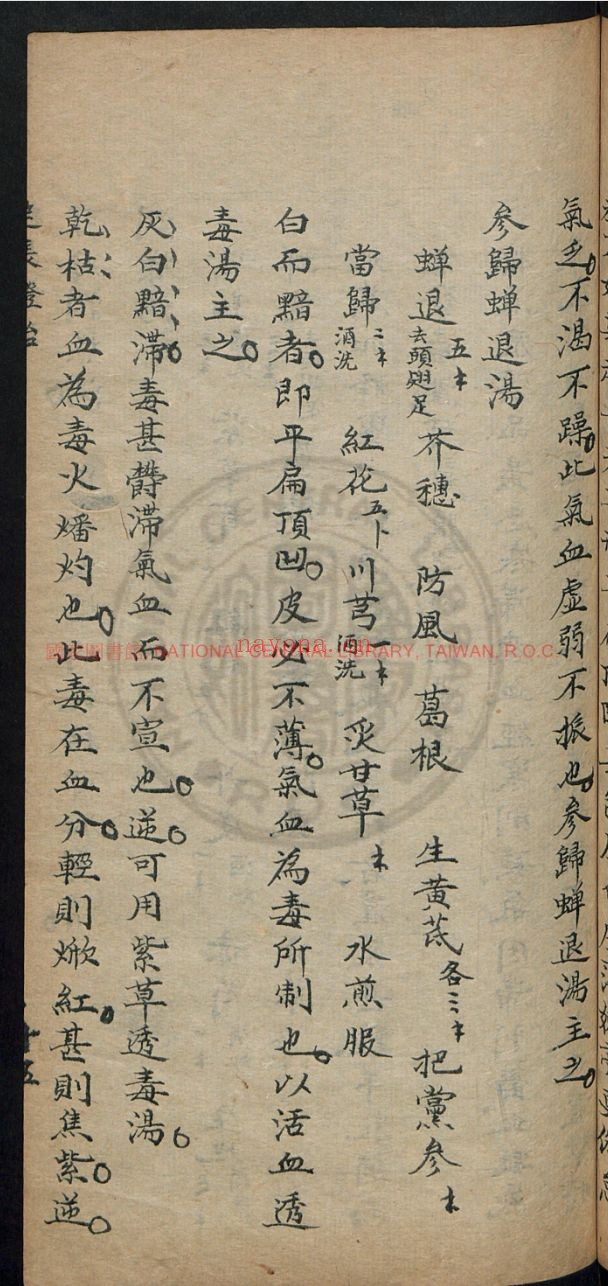 氣乏。不渴不躁。此氣血虛弱不振也。參歸蟬退湯主之。
參歸蟬退湯
蟬退去頭翅足五才 芥穗 防風 葛根 生黃芪各三才 把黨參才
當歸酒洗二才 紅花五卜 川芎酒洗一才 炙甘草才 水煎服
白而黯者。即平扁頂凹。皮必不薄。氣血為毒所制也。以活血透
毒湯主之。
灰白黯滯。毒甚欝滯氣血而不宣也。逆。可用紫草透毒湯。
乾枯者血為毒火燔灼也。此毒在血分。輕則焮紅。甚則焦紫。逆。
十五
國家圖書館 NATIONAL CENTRAL LIBRARY, TAIWAN, R.O.C